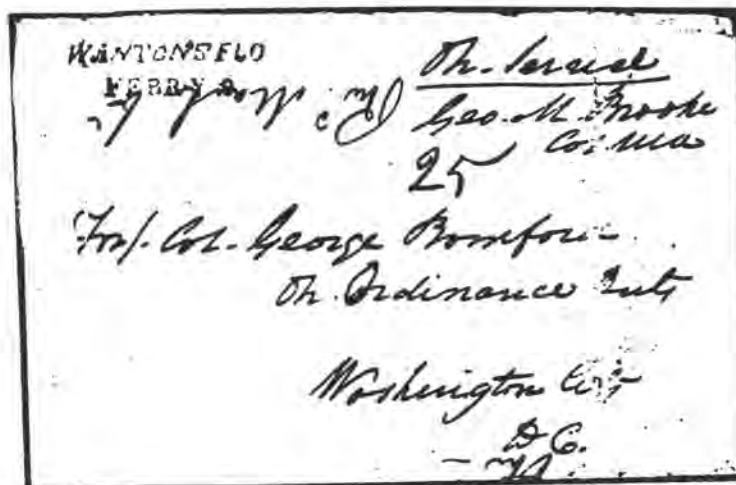 WANTONS FLO
FERRY 9.
On. Service
Geo. M. Brooke
Col. USA
25
For/. Col. George Bomford
On. Ordinance Duty
Washington City
D C.